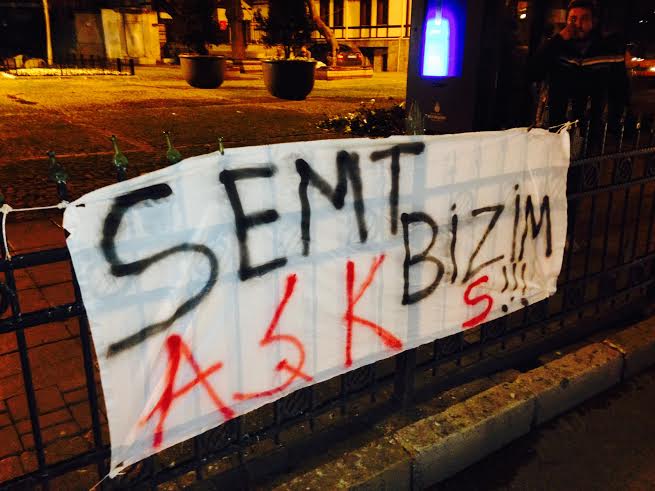 SEMT
BİZİM
AŞK S!!!